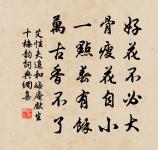 好花不必大
骨瘦花自小
一點春有餘
萬古香不了
艾性夫追和如庵獻生
十梅韵詞典網集